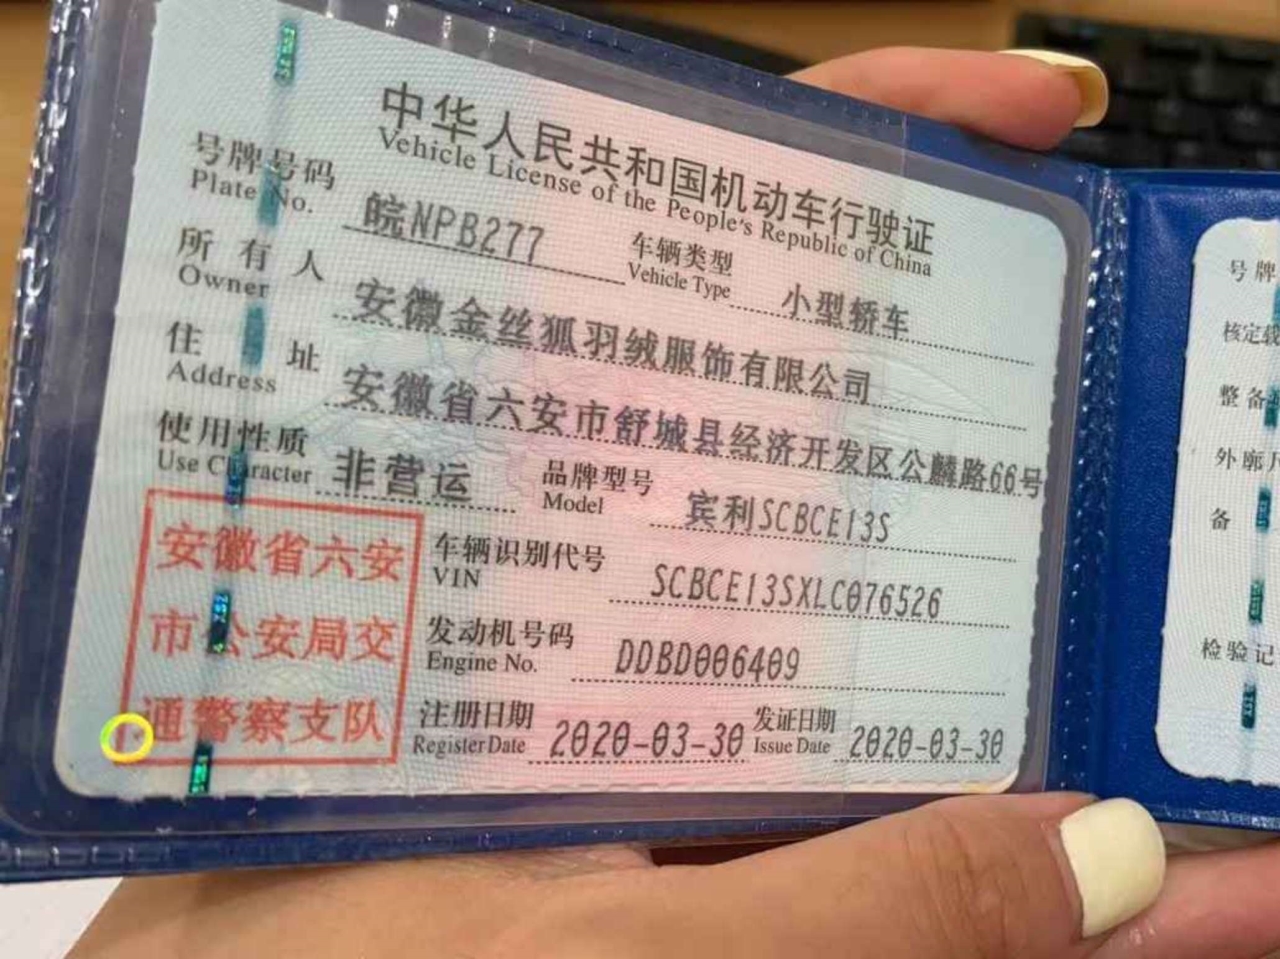 中华人民共和国机动车行驶证
Vehicle License of the People's Republic of China
号牌号码 皖NPB277 车辆类型 小型轿车
Plate No. Vehicle Type
所有人 安徽金丝狐羽绒服饰有限公司
Owner
住址 安徽省六安市舒城县经济开发区公麟路66号
Address
使用性质 非营运 品牌型号 宾利SCBCE13S
Use Character Model
安徽省六安
市公安局交
通警察支队
车辆识别代号 SCBCE13SXLC076526
VIN
发动机号码 DDBD006409
Engine No.
注册日期 2020-03-30 发证日期 2020-03-30
Register Date Issue Date
号牌
核定载
整备
外廓
备
检验记